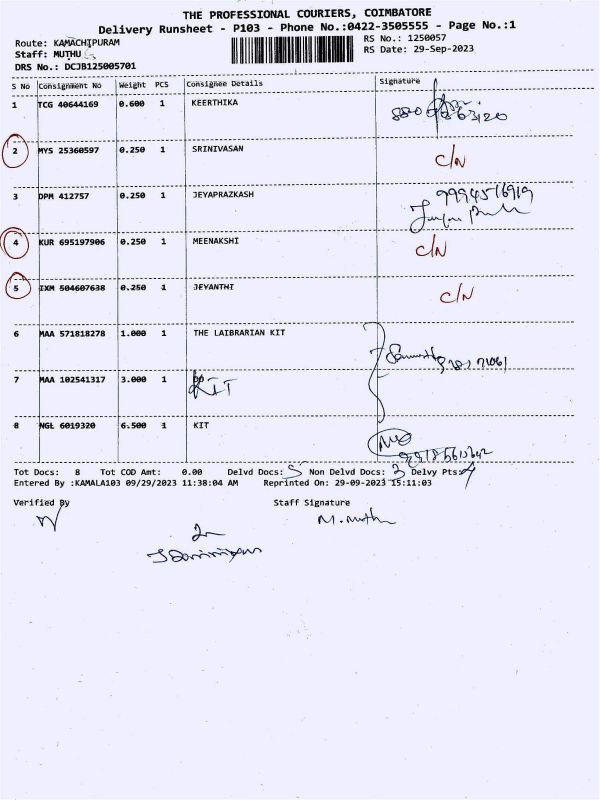 THE PROFESSIONAL COURIERS, COIMBATORE
Delivery Runsheet - P103 - Phone No.:0422-3505555 - Page No.:1
Route: KAMACHIPURAM
RS No.: 1250057
Staff: MUTHU
RS Date: 29-Sep-2023
DRS No.: DCJB125005701
S No Consignment No Weight PCS Consignee Details Signature
1 TCG 40644169 0.600 1 KEERTHIKA
2 MYS 25360597 0.250 1 SRINIVASAN C/N
3 DPM 412757 0.250 1 JEYAPRAZKASH 9994516919
4 KUR 695197906 0.250 1 MEENAKSHI C/N
5 IXM 504607638 0.250 1 JEYANTHI C/N
6 MAA 571818278 1.000 1 THE LAIBRARIAN KIT
7 MAA 102541317 3.000 1 KIT
8 NGL 6019320 6.500 1 KIT
Tot Docs: 8 Tot COD Amt: 0.00 Delvd Docs: 5 Non Delvd Docs: 3 Delvy Pts: 4
Entered By :KAMALA103 09/29/2023 11:38:04 AM Reprinted On: 29-09-2023 15:11:03
Verified By Staff Signature
M. Muthu